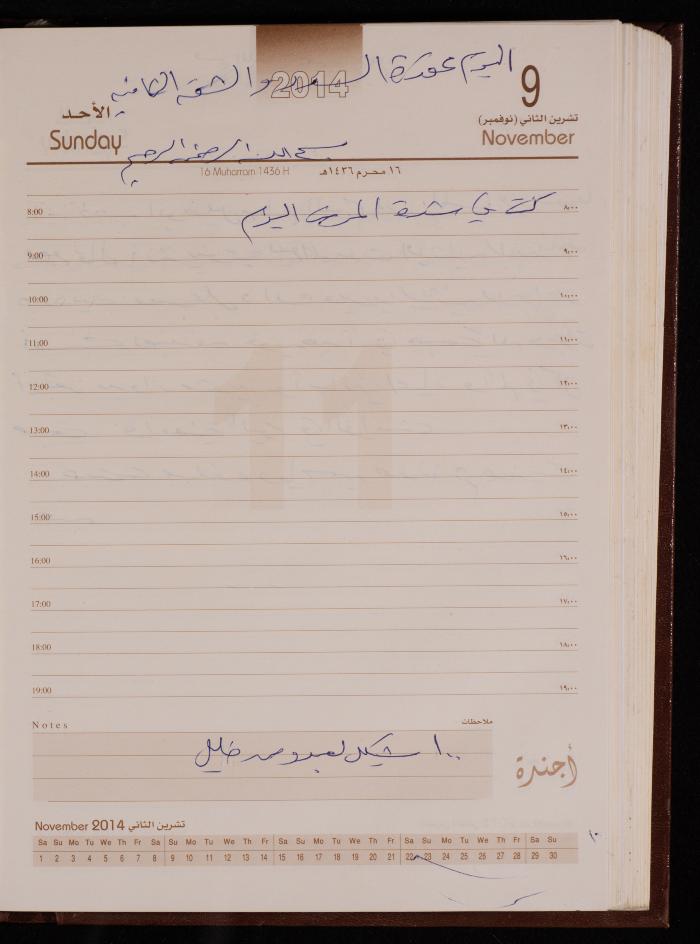 اليوم عودة السيد والشقة الثانية
2014
9
الأحد
تشرين الثاني (نوفمبر)
Sunday
November
بسم الله الرحمن الرحيم
16 Muharram 1436 H
١٦ محرم ١٤٣٦هـ
كنت في شدة المرض اليوم
8:00 ٨:٠٠
9:00 ٩:٠٠
10:00 ١٠:٠٠
11:00 ١١:٠٠
12:00 ١٢:٠٠
13:00 ١٣:٠٠
14:00 ١٤:٠٠
15:00 ١٥:٠٠
16:00 ١٦:٠٠
17:00 ١٧:٠٠
18:00 ١٨:٠٠
19:00 ١٩:٠٠
Notes ملاحظات
١٠٠ شيكل لعبد خليل
أجندة
November 2014 تشرين الثاني
Sa Su Mo Tu We Th Fr Sa Su Mo Tu We Th Fr Sa Su Mo Tu We Th Fr Sa Su Mo Tu We Th Fr Sa Su
1 2 3 4 5 6 7 8 9 10 11 12 13 14 15 16 17 18 19 20 21 22 23 24 25 26 27 28 29 30